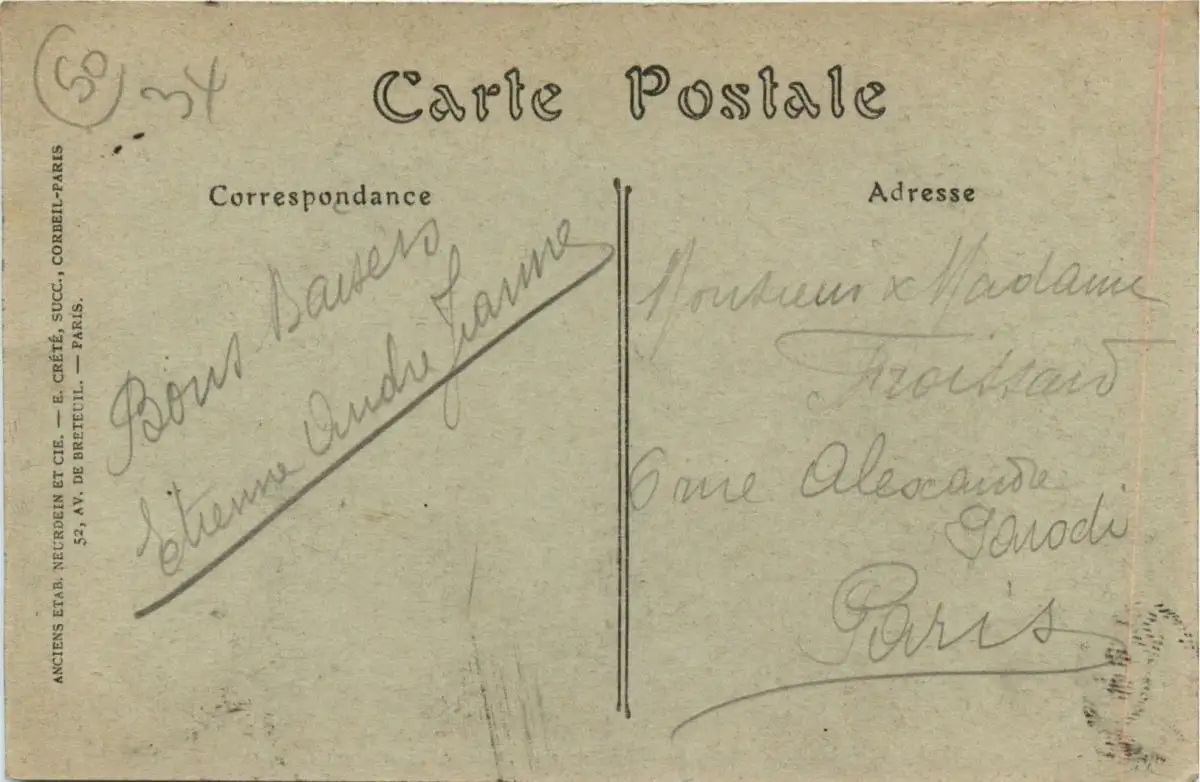 50
34
Carte Postale
Correspondance
Adresse
Bons Baisers
Etienne Andre Jeanne
Monsieur & Madame
Froissard
6 rue Alexandre
Parodi
Paris
ANCIENS ETAB. NEURDEIN ET CIE. — E. CRÉTÉ, SUCC., CORBEIL-PARIS
52, AV. DE BRETEUIL. — PARIS.